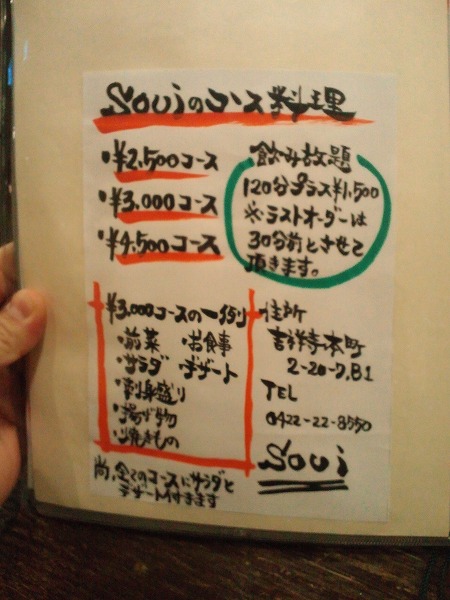 Souiのコース料理
・¥2,500コース
・¥3,000コース
・¥4,500コース
飲み放題
120分プラス¥1,500
※ラストオーダーは
30分前とさせて
頂きます。
¥3,000コースの一例
・前菜 ・お食事
・サラダ ・デザート
・刺身盛り
・揚げ物
・焼きもの
住所
吉祥寺本町
2-20-7,B1
TEL
0422-22-8550
Soui
尚、全てのコースにサラダと
デザート付きます